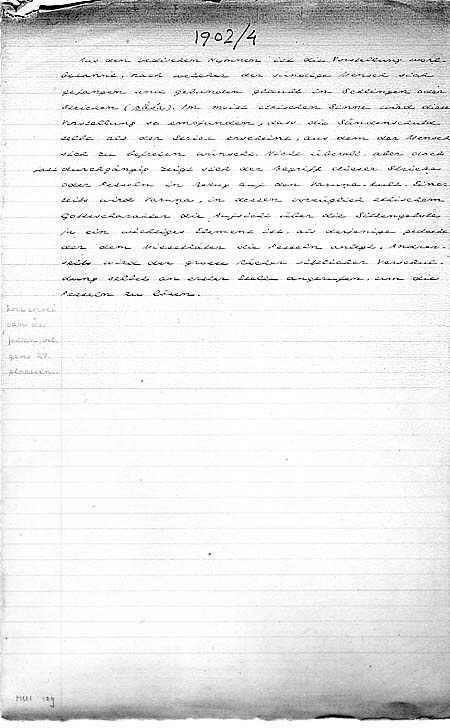 1902/4
Aus den indischen Hymnen ist die Vorstellung wohl
bekannt, nach welcher der sündige Mensch sich
gefangen und gebunden glaubt in Schlingen oder
Stricken (pāśa). Im meist ethischen Sinne wird diese
Vorstellung so empfunden, dass die Sündenschuld
selbst als der Strick erscheint, aus dem der Mensch
sich zu befreien wünscht. Nicht überall, aber doch
fast durchgängig zeigt sich der Begriff dieser Stricke
oder Fesseln in Bezug auf den Varuna-kult. Einer-
seits wird Varuna, in dessen vorzüglich ethischem
Gottescharakter die Aufsicht über die Sittengebote
ja ein wichtiges Element ist, als derjenige gedacht
der dem Missethäter die Fesseln anlegt, Andrer-
seits wird der grosse Rächer sittlicher Verschul-
dung selbst an erster Stelle angerufen, um die
Fesseln zu lösen.